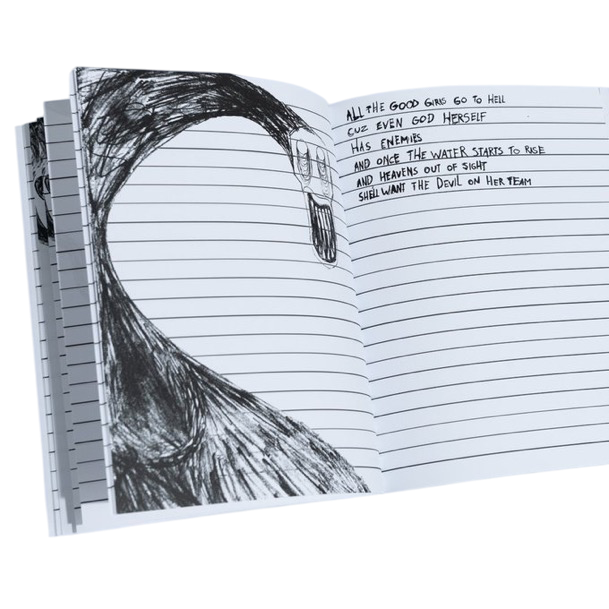 ALL THE GOOD GIRLS GO TO HELL
CUZ EVEN GOD HERSELF
HAS ENEMIES
AND ONCE THE WATER STARTS TO RISE
AND HEAVENS OUT OF SIGHT
SHELL WANT THE DEVIL ON HER TEAM